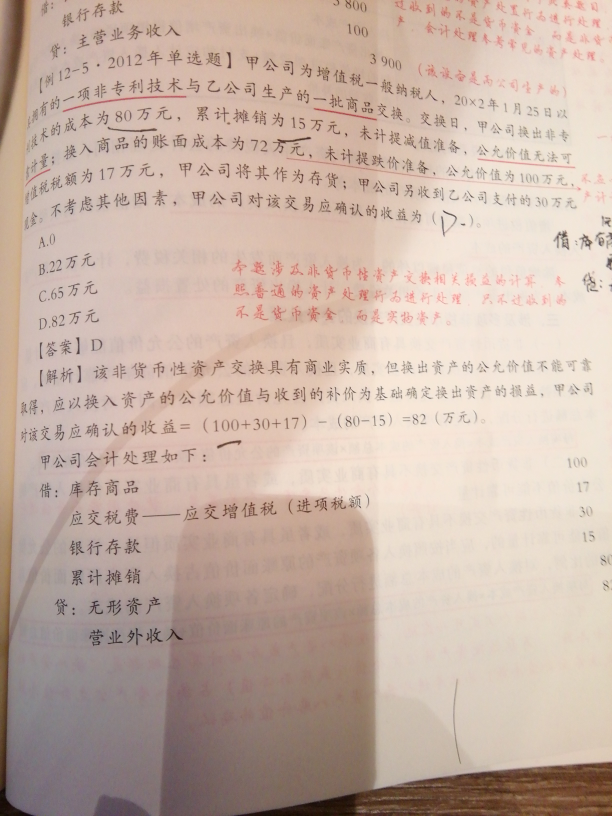 借:
银行存款
3 800
贷：主营业务收入
100
3 900
（该设备是丙公司生产的）
【例12-5·2012年单选题】甲公司为增值税一般纳税人，20×2年1月25日以
拥有的一项非专利技术与乙公司生产的一批商品交换。交换日，甲公司换出非专
技术的成本为80万元，累计摊销为15万元，未计提减值准备，公允价值无法可
计量；换入商品的账面成本为72万元，未计提跌价准备，公允价值为100万元，
值税税额为17万元，甲公司将其作为存货；甲公司另收到乙公司支付的30万元
现金。不考虑其他因素，甲公司对该交易应确认的收益为（D）。
A.0
B.22万元
C.65万元
D.82万元
本题涉及非货币性资产交换相关损益的计算，参
照普通的资产处理行为进行处理，只不过收到的
不是货币资金，而是实物资产。
【答案】D
【解析】该非货币性资产交换具有商业实质，但换出资产的公允价值不能可靠
取得，应以换入资产的公允价值与收到的补价为基础确定换出资产的损益，甲公司
对该交易应确认的收益=（100+30+17）-（80-15）=82（万元）。
甲公司会计处理如下：
借：库存商品 100
应交税费——应交增值税（进项税额） 17
银行存款 30
累计摊销 15
贷：无形资产 80
营业外收入